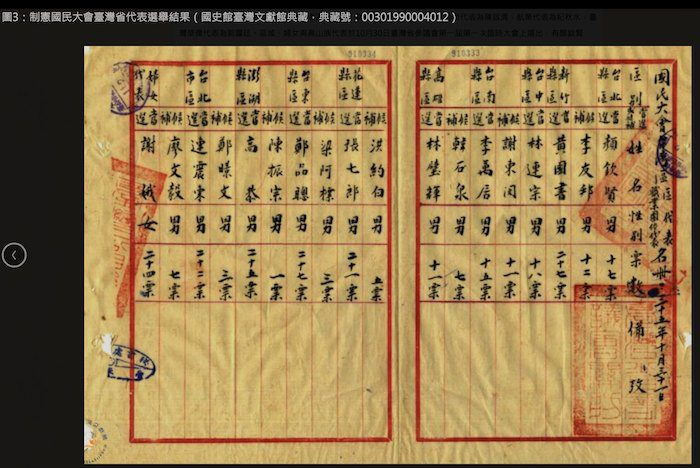 圖3：制憲國民大會臺灣省代表選舉結果（國史館臺灣文獻館典藏，典藏號：00301990004012）
910334
910333
國民大會區域代表名冊
職業團體代表
三十五年十月三十一日
區別 姓名 性別 票數 備攷
台北縣區 當選 顏欽賢 男 十七票
候補 李友邦 男 十二票
新竹縣區 當選 黃國書 男 二十七票
台中縣區 當選 林連宗 男 十八票
候補 謝東閔 男 十一票
台南縣區 當選 李萬居 男 十五票
候補 韓石泉 男 七票
高雄縣區 當選 林璧輝 男 十一票
候補 洪約伯 男 五票
花蓮縣區 當選 張七郎 男 二十一票
候補 梁阿標 男 三票
台東縣區 當選 鄭品聰 男 二十七票
候補 陳振宗 男 一票
澎湖縣區 當選 高恭 男 二十五票
候補 鄭暻文 男 三票
台北市區 當選 連震東 男 二十二票
候補 廖文毅 男 七票
婦女代表 當選 謝娥 女 二十四票